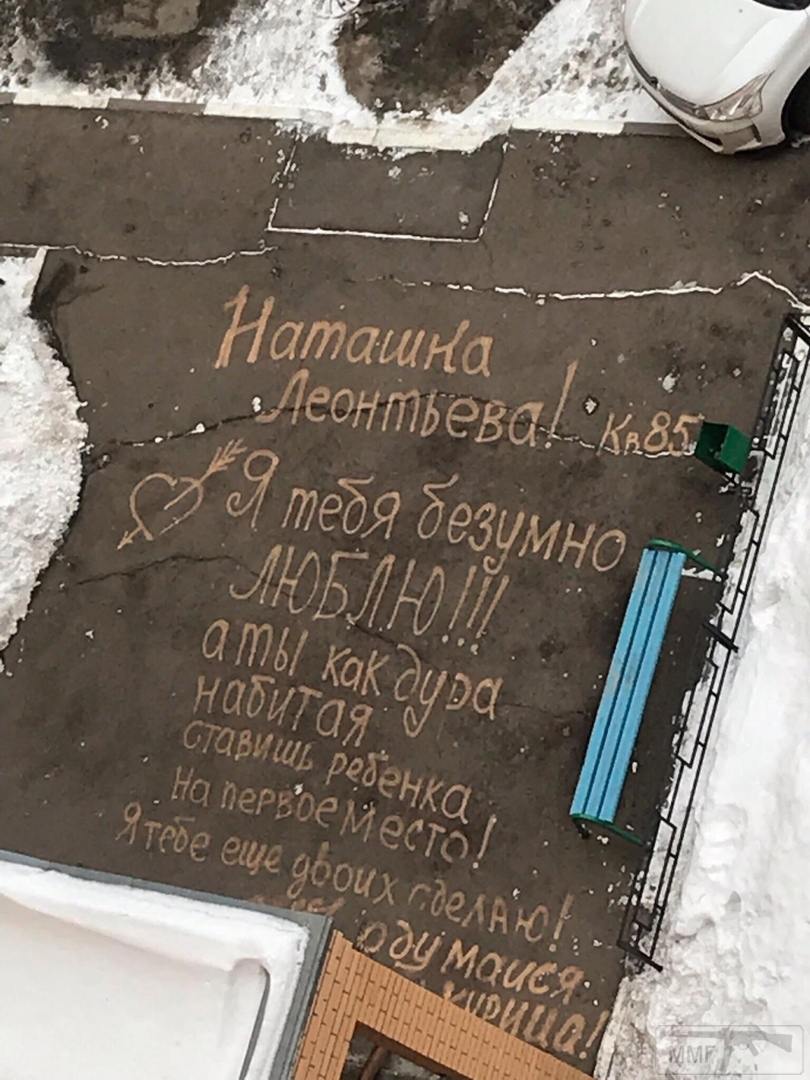 Наташка
Леонтьева! Кв 85
Я тебя безумно
ЛЮБЛЮ!!!
а ты как дура
набитая
ставишь ребенка
на первое место!
Я тебе еще двоих сделаю!
одумайся
курица!
MMF